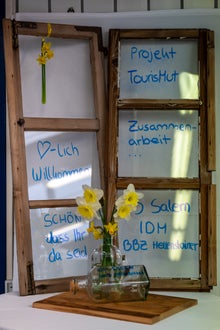 ♡-lich
Willkommen
SCHÖN
dass Ihr
da seid
Projekt
TourisMut
Zusammen-
arbeit
...
Salem
IDM
BBZ